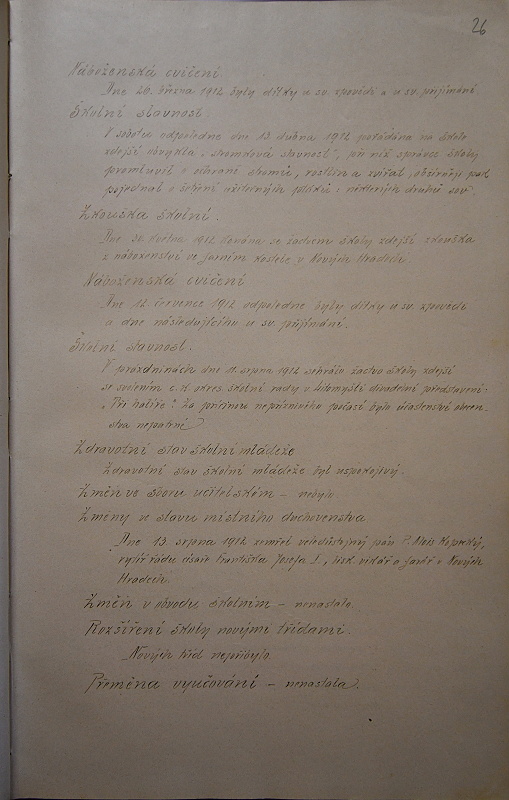 26
Náboženská cvičení.
Dne 20. března 1912 byly dítky u sv. zpovědi a u sv. přijímání.
Školní slavnost.
V sobotu odpoledne dne 13. dubna 1912 pořádána na škole
zdejší obvyklá „stromková slavnost", při níž správce školy
promluvil o ochraně stromů, rostlin a zvířat, obšírněji pak
pojednal o šetření užitečných ptáků i některých druhů sov.
Zkouška školní.
Dne 30. května 1912 konána se žactvem školy zdejší zkouška
z náboženství ve farním kostele v Nových Hradech.
Náboženská cvičení
Dne 12. července 1912 odpoledne byly dítky u sv. zpovědi
a dne následujícího u sv. přijímání.
Školní slavnost.
V prázdninách dne 11. srpna 1912 sehrálo žactvo školy zdejší
se svolením c. k. okres. školní rady v Litomyšli divadelní představení:
„Tři haléře". Za příčinou nepříznivého počasí bylo účastenství obecen-
stva nepatrné.
Zdravotní stav školní mládeže
Zdravotní stav školní mládeže byl uspokojivý.
Změn ve sboru učitelském – nebylo.
Změny ve stavu místního duchovenstva.
Dne 13. srpna 1912 zemřel veledůstojný pán P. Alois
rytíř řádu císaře Františka Josefa I., bisk. vikář a farář v Nových
Hradech.
Změn v obvodu školním – nenastalo.
Rozšíření školy novými třídami.
Nových tříd nepřibylo.
Přeměna vyučování – nenastala.